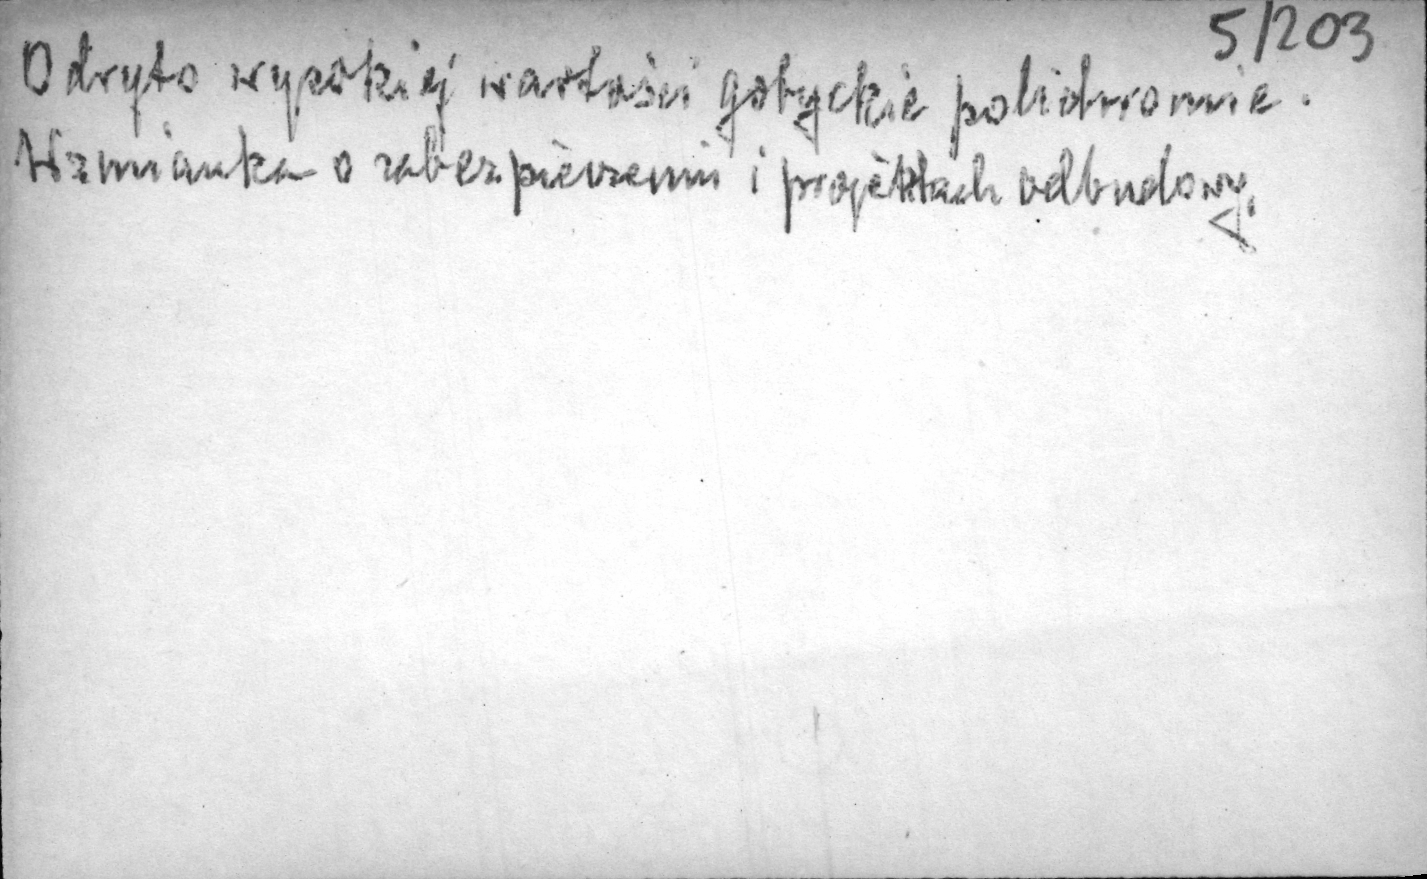 5/203
Odkryto wysokiej wartości gotyckie polichromie.
Wzmianka o zabezpieczeniu i projektach odbudowy.